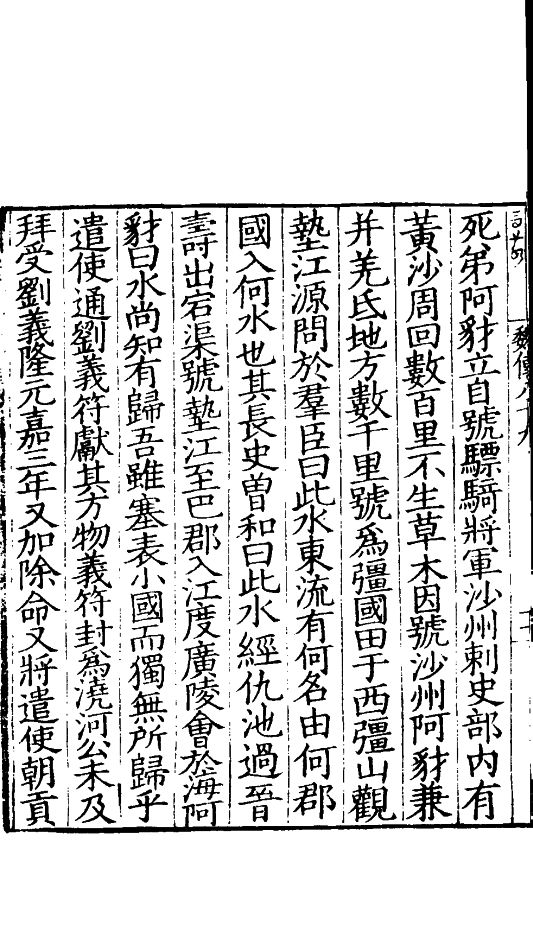 魏傳八十九
死弟阿豺立自號驃騎將軍沙州刺史部内有
黃沙周回數百里不生草木因號沙州阿豺兼
并羌氐地方數千里號為彊國田于西彊山觀
墊江源問於羣臣曰此水東流有何名由何郡
國入何水也其長史曾和曰此水經仇池過晉
壽出宕渠號墊江至巴郡入江度廣陵會於海阿
豺曰水尚知有歸吾雖塞表小國而獨無所歸乎
遣使通劉義符獻其方物義符封為澆河公未及
拜受劉義隆元嘉三年又加除命又將遣使朝貢